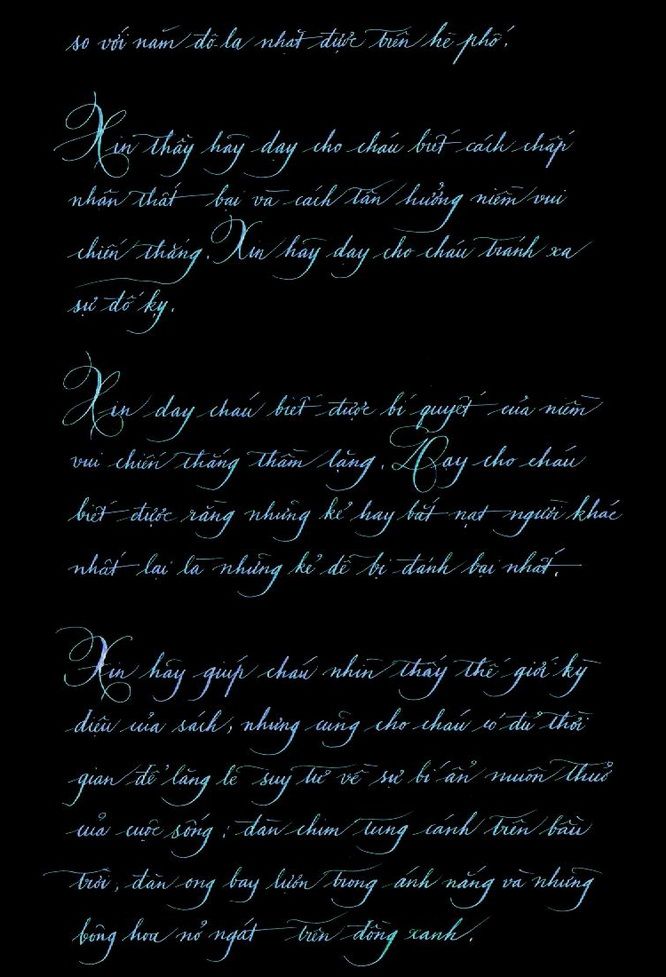 so với năm đô la nhặt được trên hè phố.
Xin thầy hãy dạy cho cháu biết cách chấp
nhận thất bại và cách tận hưởng niềm vui
chiến thắng. Xin hãy dạy cho cháu tránh xa
sự đố kỵ.
Xin dạy cháu biết được bí quyết của niềm
vui chiến thắng thầm lặng. Dạy cho cháu
biết được rằng những kẻ hay bắt nạt người khác
nhất lại là những kẻ dễ bị đánh bại nhất.
Xin hãy giúp cháu nhìn thấy thế giới kỳ
diệu của sách, nhưng cũng cho cháu có đủ thời
gian để lặng lẽ suy tư về sự bí ẩn muôn thuở
của cuộc sống: đàn chim tung cánh trên bầu
trời, đàn ong bay lượn trong ánh nắng và những
bông hoa nở ngát trên đồng xanh.